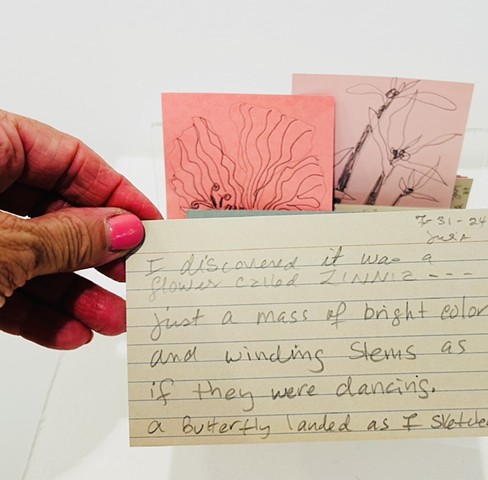 7-31-24
I discovered it was a
flower called ZINNIZ ---
just a mass of bright color
and winding stems as
if they were dancing.
a Butterfly landed as I sketche